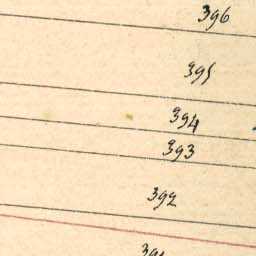 396
395
394
393
392
391